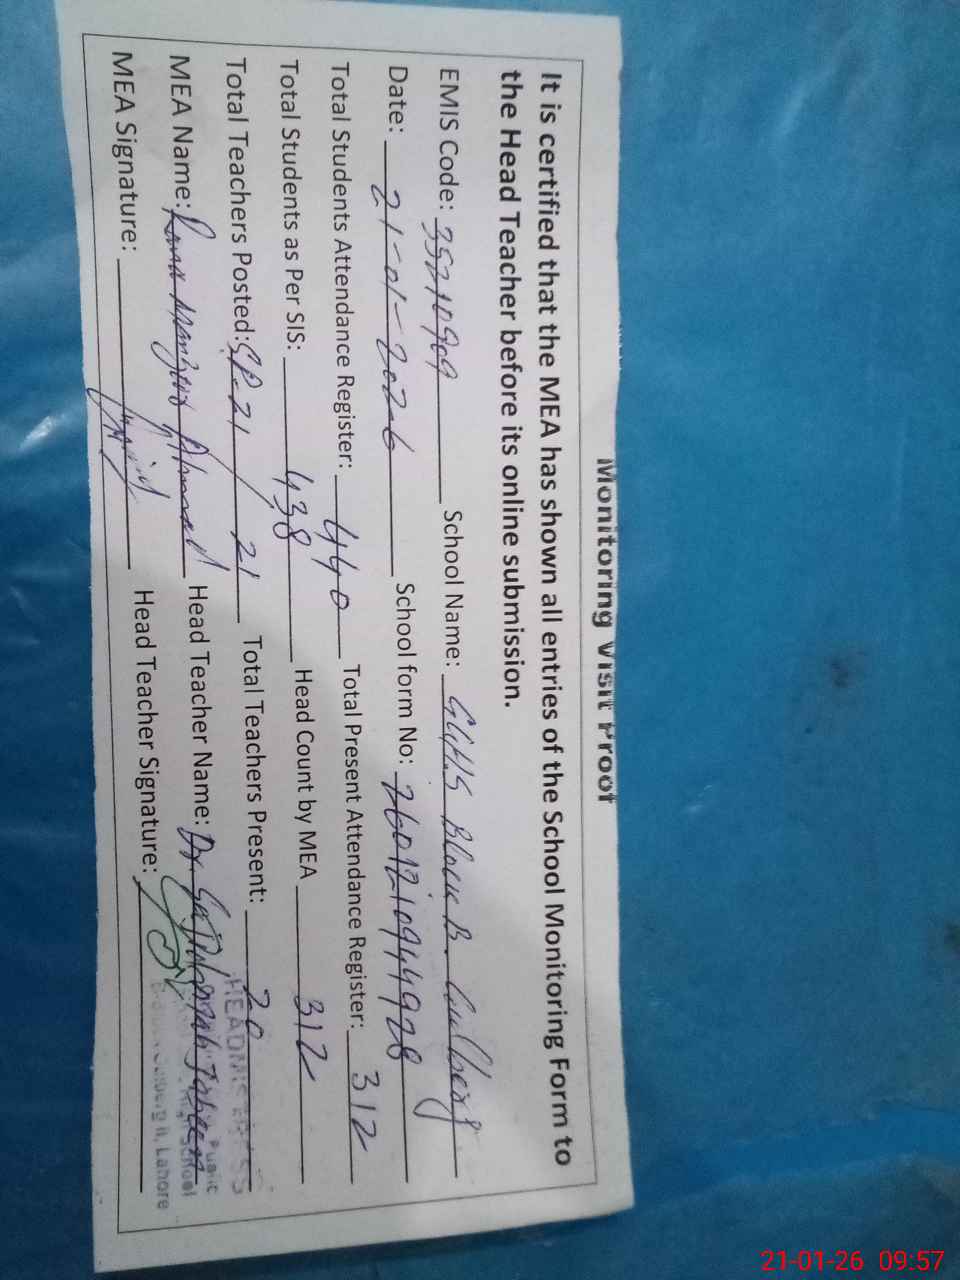 Monitoring Visit Proof
It is certified that the MEA has shown all entries of the School Monitoring Form to
the Head Teacher before its online submission.
EMIS Code: 35210909 School Name: GGHS Block B Gulberg
Date: 21-01-2026 School form No:
Total Students Attendance Register: 440 Total Present Attendance Register: 312
Total Students as Per SIS: 438 Head Count by MEA 312
Total Teachers Posted: 21 21 Total Teachers Present: 20
MEA Name: Rana Ahmad Head Teacher Name: Dr.
MEA Signature: Head Teacher Signature:
HEADMISTRESS
Public
High School
Gulberg II, Lahore
21-01-26 09:57